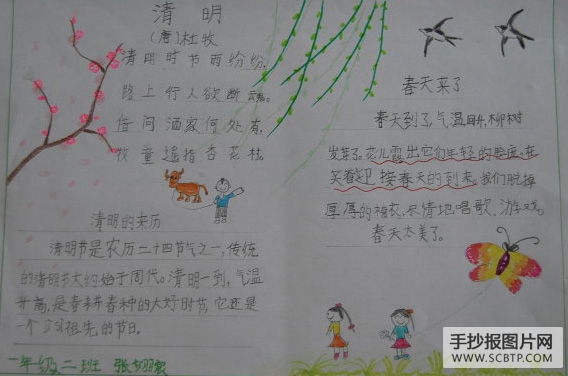 清明
（唐）杜牧
清明时节雨纷纷,
路上行人欲断魂。
借问酒家何处有,
牧童遥指杏花村。
清明的来历
清明节是农历二十四节气之一,传统
的清明节大约始于周代。清明一到,气温
升高,是春耕春种的大好时节,它还是
一个祖先的节日。
一年级二班 张
春天来了
春天到了,气温回升,柳树
发芽了。花儿露出它们年轻的脸庞,在
笑着迎接春天的到来。我们脱掉
厚厚的棉衣,尽情地唱歌、游戏。
春天太美了。
手抄报图片网
WWW.SCBTP.COM